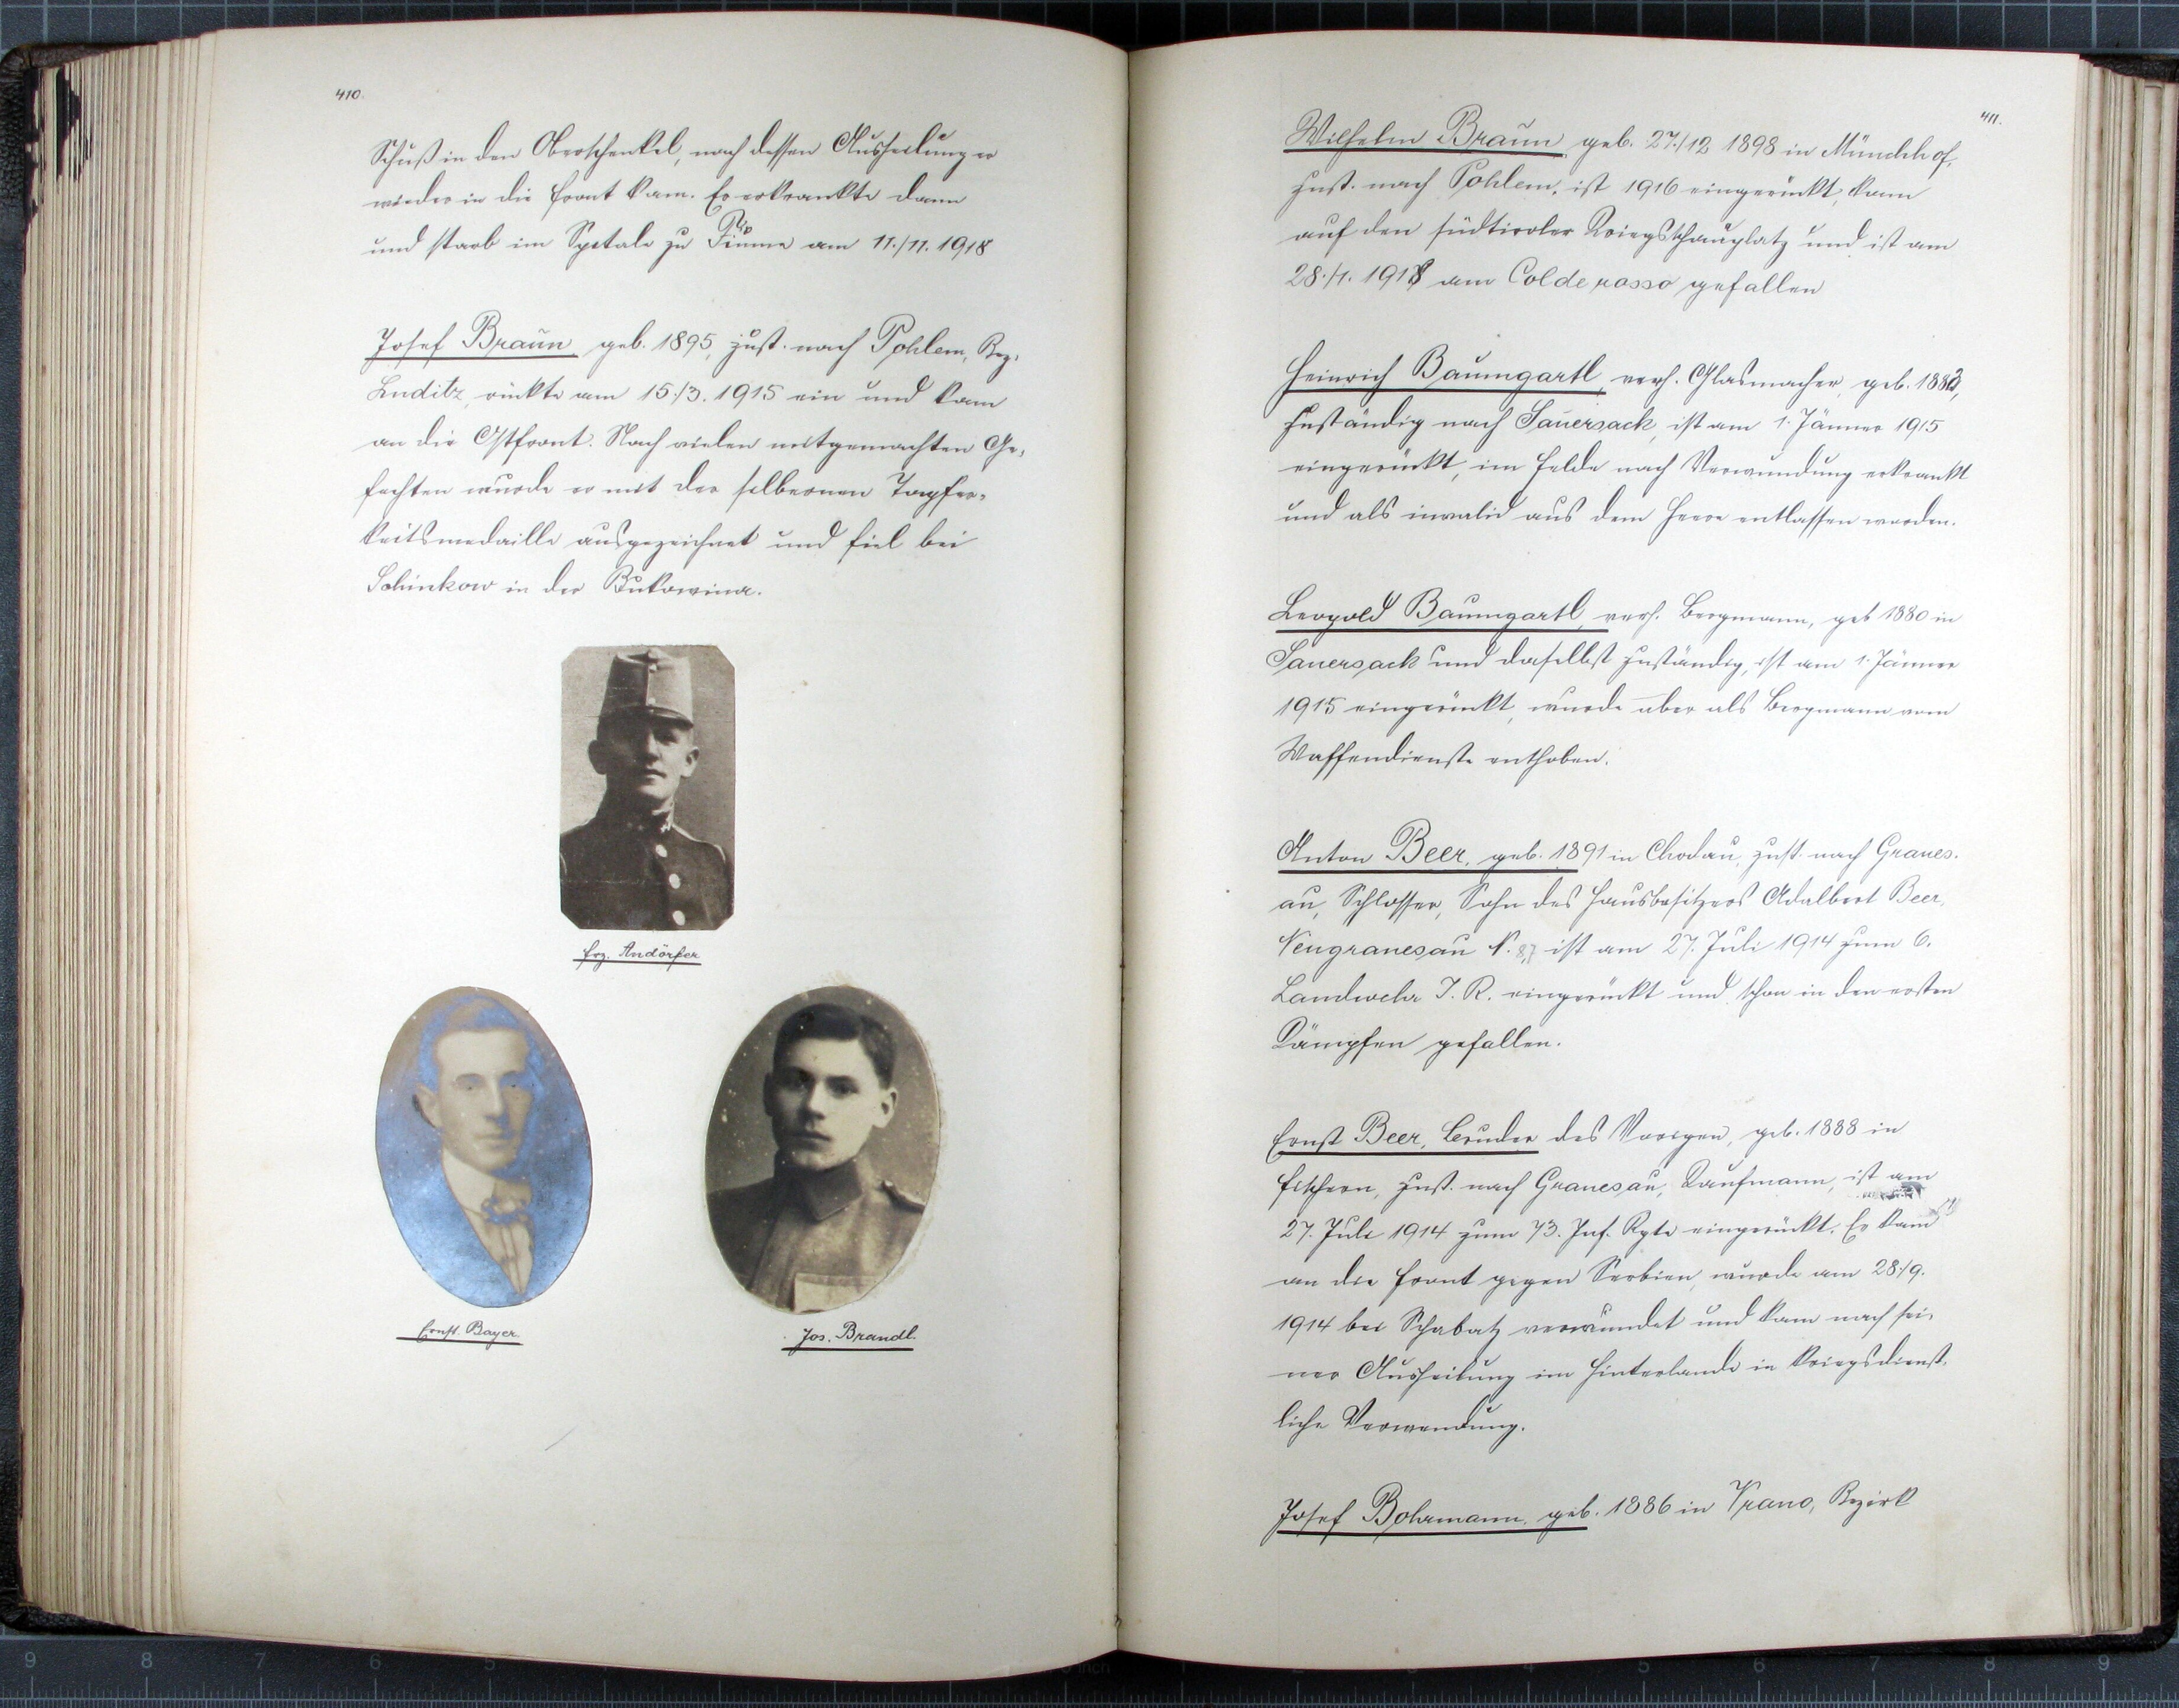 410.
Schuß in den Oberschenkel, nach dessen Ausheilung er
wieder in die Front kam. Er erkrankte dann
und starb im Spitale zu Fiume am 11./11. 1918
Josef Braun geb. 1895, zust. nach Pohlem, Bez.
Luditz, rückte am 15./3. 1915 ein und kam
an die Ostfront. Nach vielen mitgemachten Ge-
fechten wurde er mit der silbernen Tapfer-
keitsmedaille ausgezeichnet und fiel bei
Schinkow in der Bukowina.
Frz. Andörfer
Ernst. Bayer
Jos. Brandl.
411.
Wilhelm Braun geb. 27./12 1898 in Münchhof,
zust. nach Pohlem, ist 1916 eingerückt, kam
auf den südtiroler Kriegsschauplatz und ist am
28./1. 1918 am Col de rosso gefallen
Heinrich Baumgartl, verh. Glasmacher, geb. 1883,
zuständig nach Sauersack, ist am 1. Jänner 1915
eingerückt, im Felde nach Verwundung erkrankt
und als invalid aus dem Heere entlassen worden.
Leopold Baumgartl, verh. Bergmann, geb 1880 in
Sauersack und daselbst zuständig, ist am 1. Jänner
1915 eingerückt, wurde aber als Bergmann vom
Waffendienste enthoben.
Anton Beer, geb. 1891 in Chodau, zust. nach Granes-
au, Schlosser, Sohn des Hausbesitzers Adalbert Beer,
Neugranesau N. 87 ist am 27. Juli 1914 zum 6.
Landwehr I. R. eingerückt und schon in den ersten
Kämpfen gefallen.
Ernst Beer, Bruder des Vorigen, geb. 1888 in
Fischern, zust. nach Granesau, Kaufmann, ist am
27. Juli 1914 zum 73. Inf. Rgte eingerückt. Er kam
an die Front gegen Serbien, wurde am 28./9.
1914 bei Schabatz verwundet und kam nach sei-
ner Ausheilung im Hinterlande in kriegsdienst-
liche Verwendung.
Josef Bohrmann, geb. 1886 in Vrano, Bezirk
9 8 7 6 5 inch 1 2 3 4 5 6 7 8 9